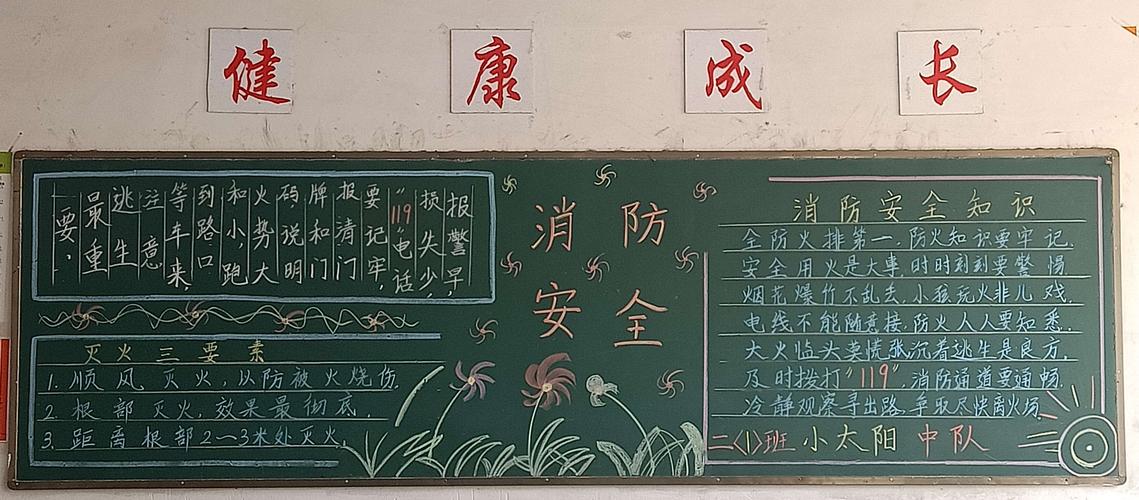 健康成长
报警早,
损失少,
"119"电话
要记牢,
报清门
牌和门
码说明
火势大
和小,跑
到路口
等车来,
注意
逃生
最重
要,
灭火三要素
1. 顺风灭火,以防被火烧伤.
2. 根部灭火,效果最彻底.
3. 距离根部2—3米处灭火.
消防
安全
消防安全知识
全防火排第一,防火知识要牢记.
安全用火是大事,时时刻刻要警惕
烟花爆竹不乱去,小孩玩火非儿戏.
电线不能随意接,防火人人要知悉.
大火临头莫慌张沉着逃生是良方.
及时拨打"119",消防通道要通畅.
冷静观察寻出路,争取尽快离火场.
二(1)班 小太阳 中队